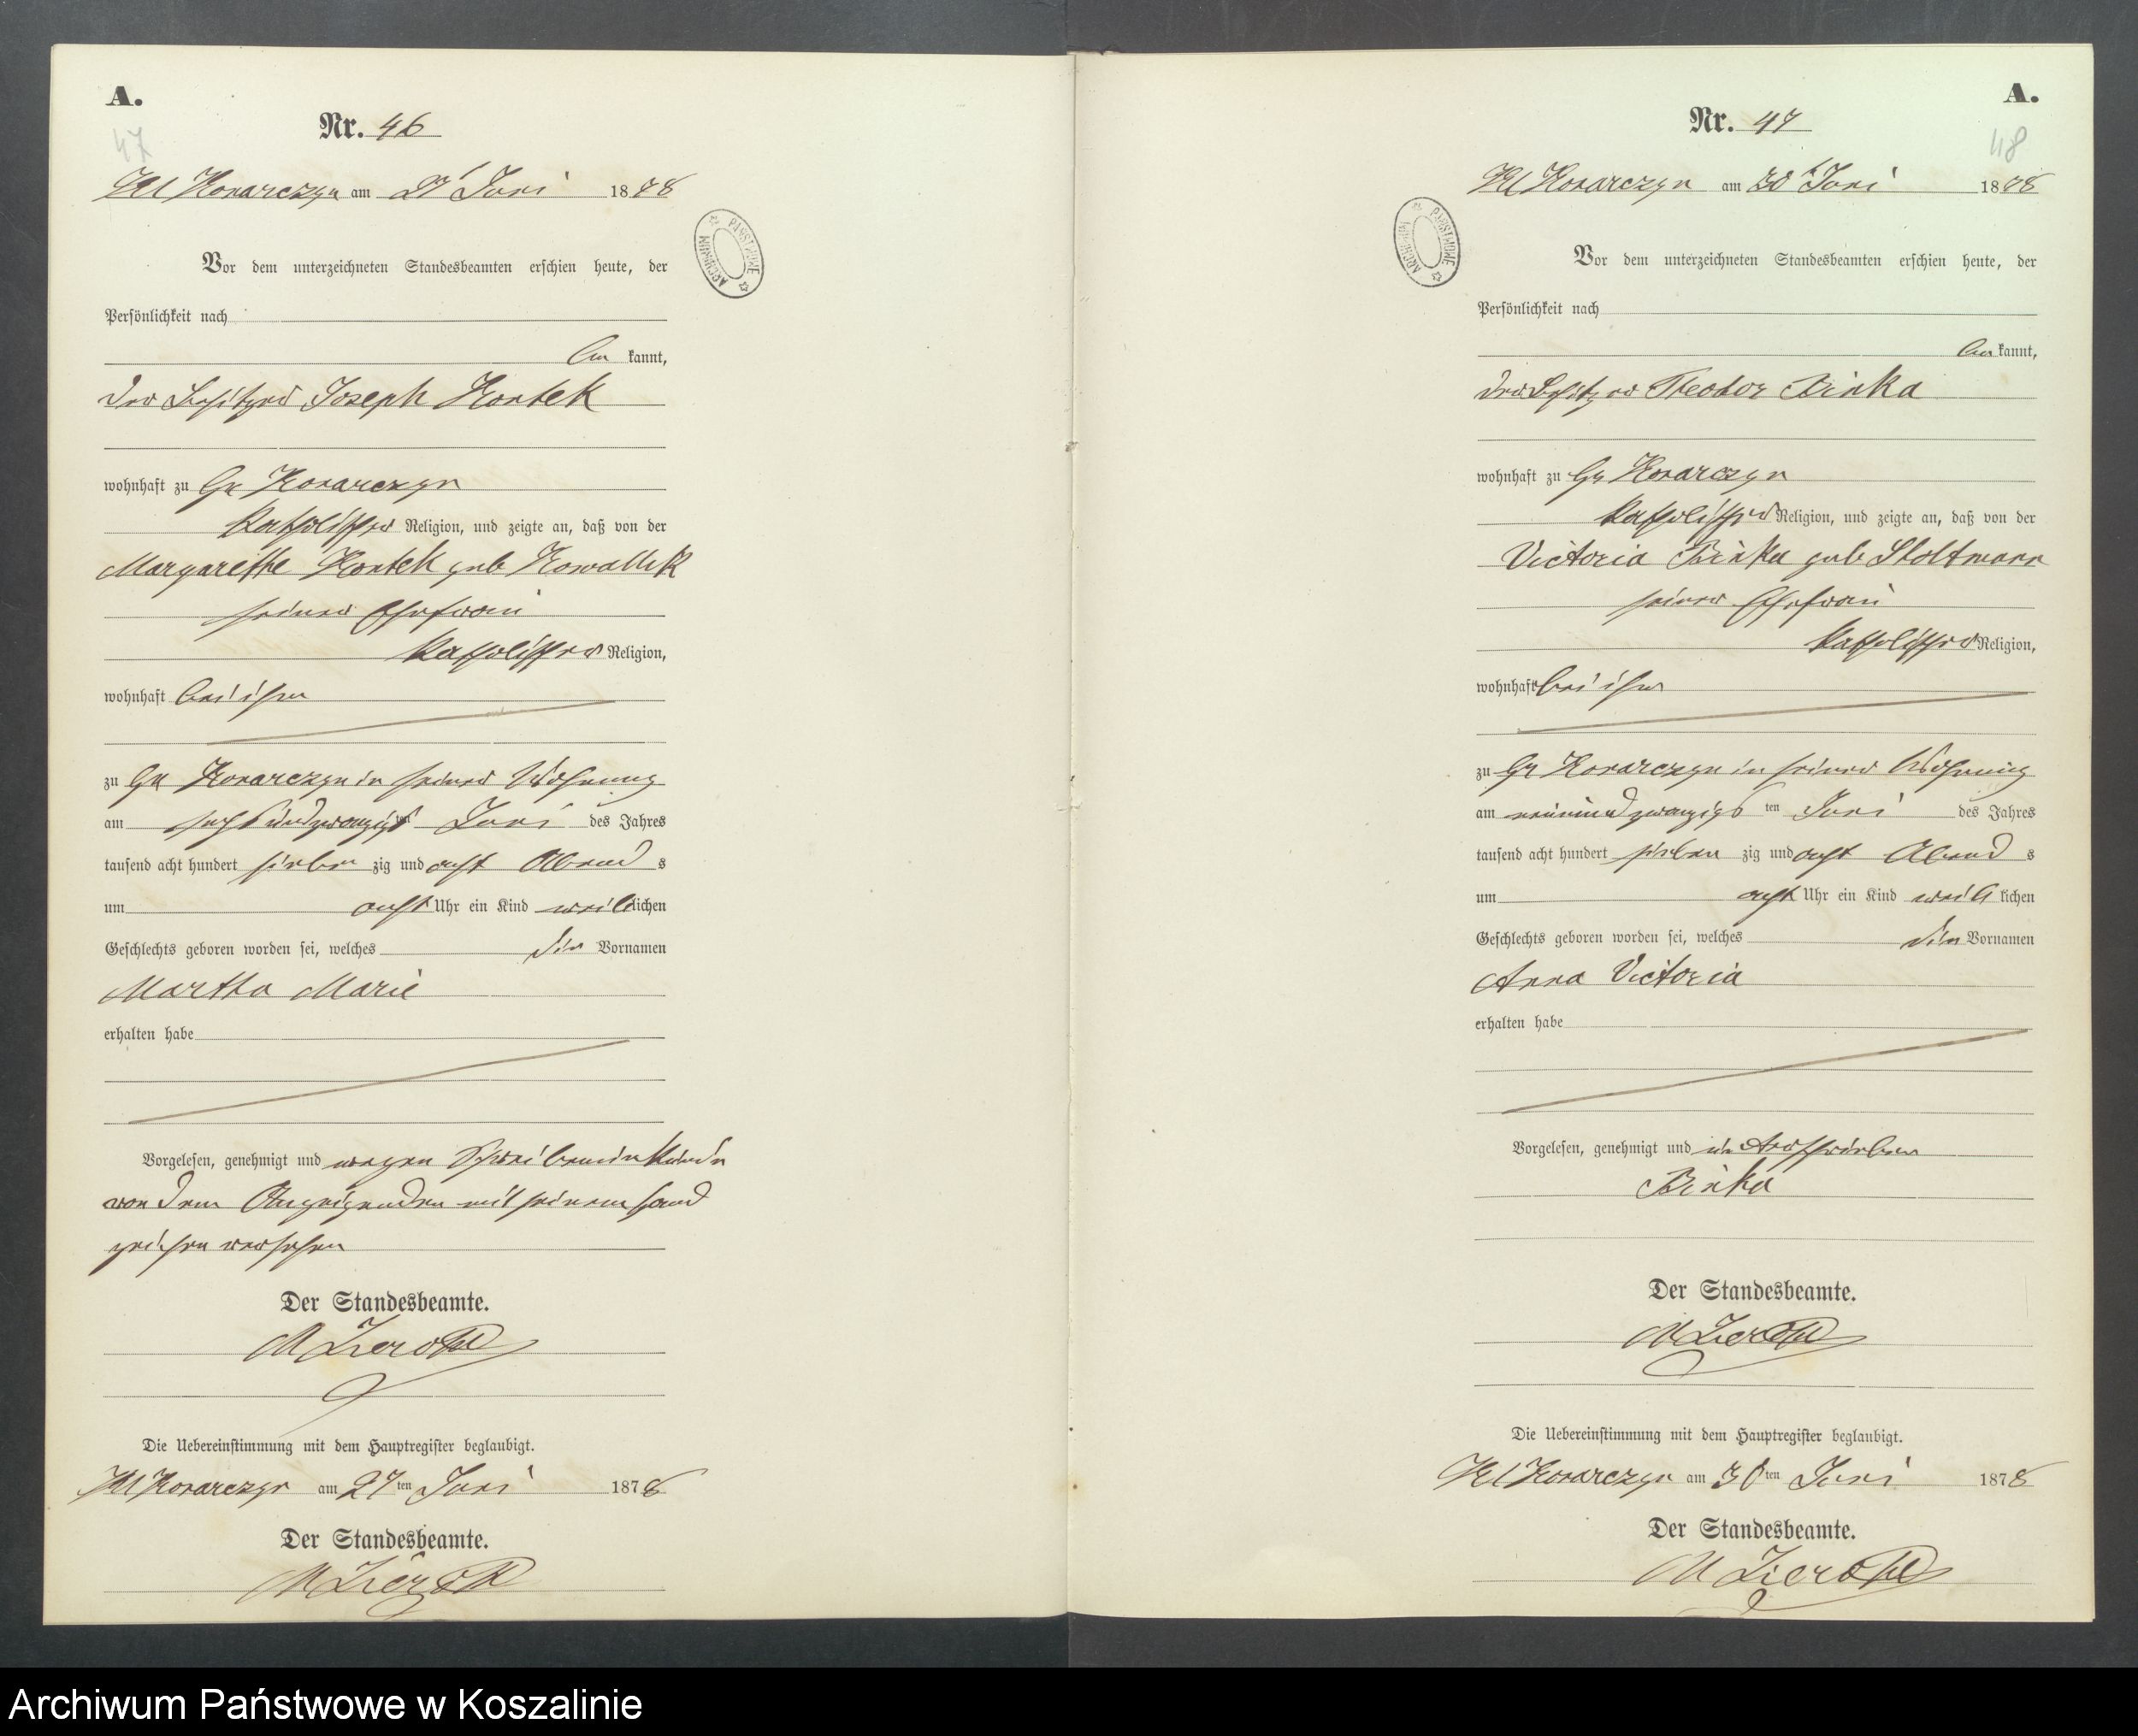 A.
Nr. 46
47
Kl Konarczyn am 27 Juni 1878
Vor dem unterzeichneten Standesbeamten erschien heute, der
Persönlichkeit nach
be kannt,
der Besitzer Joseph Kontek
wohnhaft zu Gr Konarczyn
katholischer Religion, und zeigte an, daß von der
Margarethe Kontek geb Kowallek
seiner Ehefrau
katholischer Religion,
wohnhaft bei ihm
zu Gr Konarczyn in seiner Wohnung
am sechsundzwanzigsten Juni des Jahres
tausend acht hundert sieben zig und acht Abend s
um acht Uhr ein Kind weiblichen
Geschlechts geboren worden sei, welches die Vornamen
Martha Marie
erhalten habe
Vorgelesen, genehmigt und wegen Schreibensunkunde
von dem Anzeigenden mit seinem Hand
zeichen versehen
Der Standesbeamte.
Die Uebereinstimmung mit dem Hauptregister beglaubigt.
Kl Konarczyn am 27ten Juni 1878
Der Standesbeamte.
ARCHIWUM PAŃSTWOWE
A.
Nr. 47
48
Kl Konarczyn am 30 Juni 1878
Vor dem unterzeichneten Standesbeamten erschien heute, der
Persönlichkeit nach
be kannt,
der Besitzer Theodor Binka
wohnhaft zu Gr Konarczyn
katholischer Religion, und zeigte an, daß von der
Victoria Binka geb Stoltmann
seiner Ehefrau
katholischer Religion,
wohnhaft bei ihm
zu Gr Konarczyn in seiner Wohnung
am neunundzwanzigs ten Juni des Jahres
tausend acht hundert sieben zig und acht Abend s
um acht Uhr ein Kind weib lichen
Geschlechts geboren worden sei, welches die Vornamen
Anna Victoria
erhalten habe
Vorgelesen, genehmigt und unterschrieben
Binka
Der Standesbeamte.
Die Uebereinstimmung mit dem Hauptregister beglaubigt.
Kl Konarczyn am 30ten Juni 1878
Der Standesbeamte.
ARCHIWUM PAŃSTWOWE
Archiwum Państwowe w Koszalinie